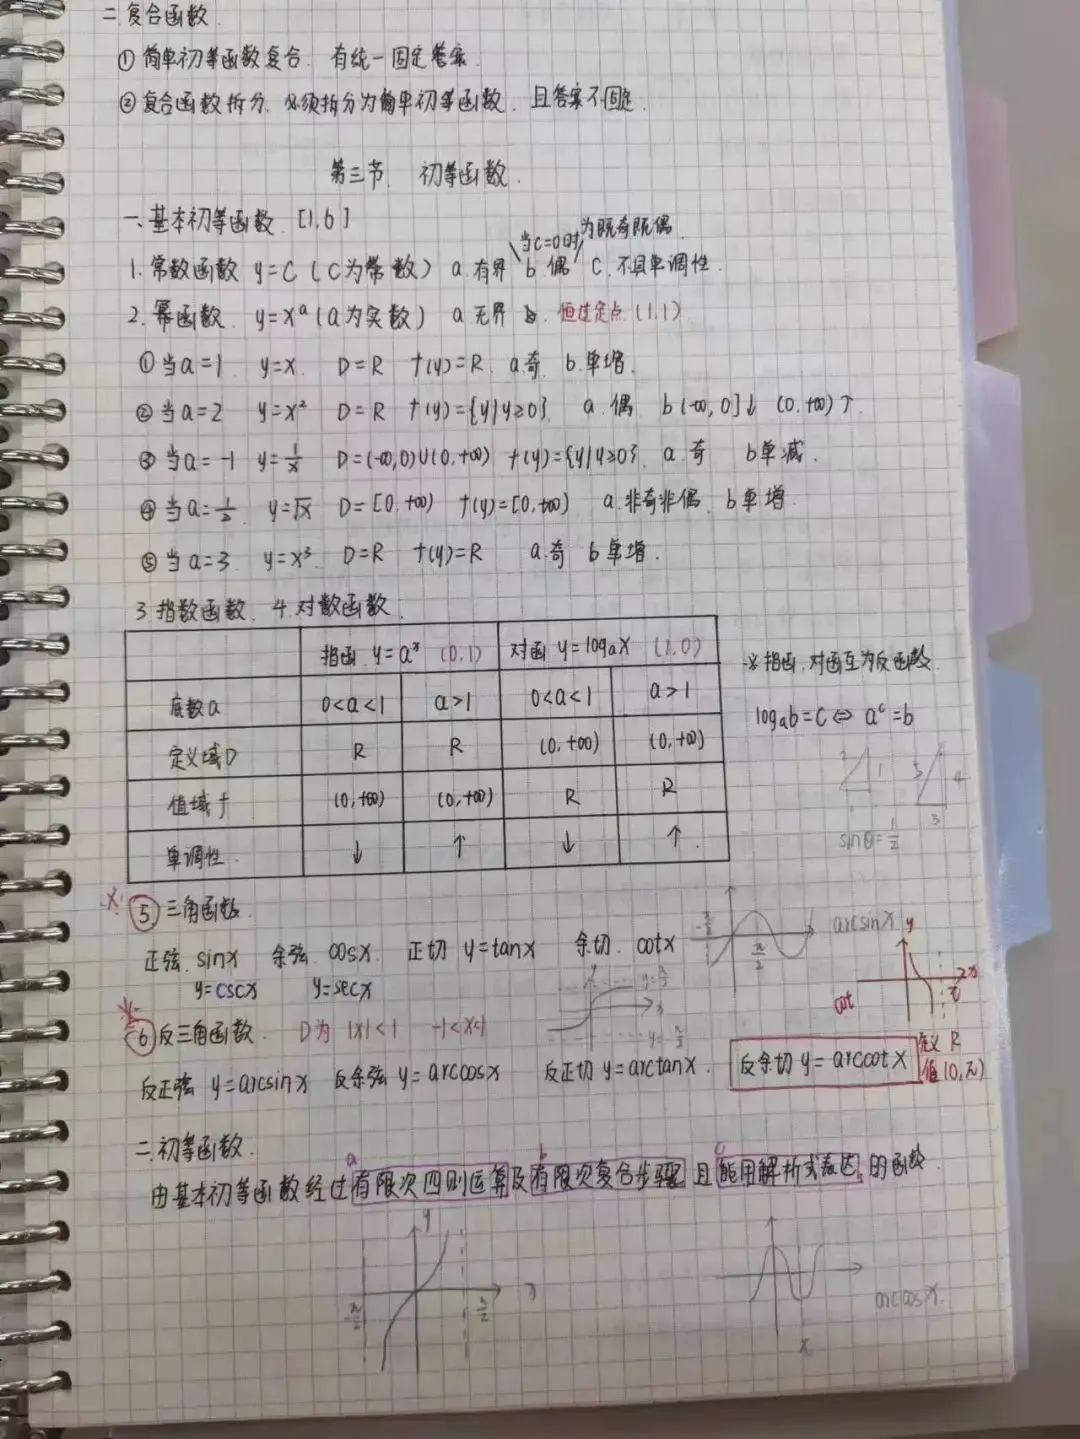 二.复合函数.
①简单初等函数复合. 有统一固定答案.
②复合函数拆分. 必须拆分为简单初等函数. 且答案不固定.
第三节. 初等函数.
一、基本初等函数. [1,6]
当C=0时 为既奇既偶.
1.常数函数 y=C (C为常数) a.有界 b.偶 C.不具单调性.
2.幂函数. y=xᵃ (a为实数) a.无界 b. 恒过定点 (1,1)
①当a=1. y=x. D=R f(y)=R. a.奇. b.单增.
②当a=2 y=x² D=R f(y)={y|y≥0}. a.偶. b(-∞,0]↓ (0,+∞)↑.
③当a=-1 y=1/x D=(-∞,0)∪(0,+∞) f(y)={y|y≥0}. a.奇 b单减.
④当a=1/2. y=√x D=[0,+∞) f(y)=[0,+∞) a.非奇非偶. b单增.
⑤当a=3. y=x³. D=R f(y)=R a.奇 b单增.
3.指数函数. 4.对数函数.
指函. y=aˣ (0,1) 对函 y=logₐx (1,0)
底数a 0<a<1 a>1 0<a<1 a>1
定义域D R R (0,+∞) (0,+∞)
值域f (0,+∞) (0,+∞) R R
单调性. ↓ ↑ ↓ ↑
※指函,对函互为反函数.
logₐb=C⇔aᶜ=b
2 1 5 4 3
sinθ=1/2
⑤三角函数.
正弦. sinx 余弦. cosx. 正切 y=tanx 余切. cotx
y=cscx y=secx
-π/2 π/2 arcsinx
y x π cot
y=π/2 x y=-π/2
⑥反三角函数. D为 |x|<1 -1<x<1
反正弦 y=arcsinx 反余弦 y=arccosx 反正切 y=arctanx. 反余切 y=arccotx
定义 R
值(0,π)
二.初等函数.
a b c
由基本初等函数经过有限次四则运算及有限次复合步骤且能用解析式表达.的函数.
y x -π/2 π/2
arccosx.